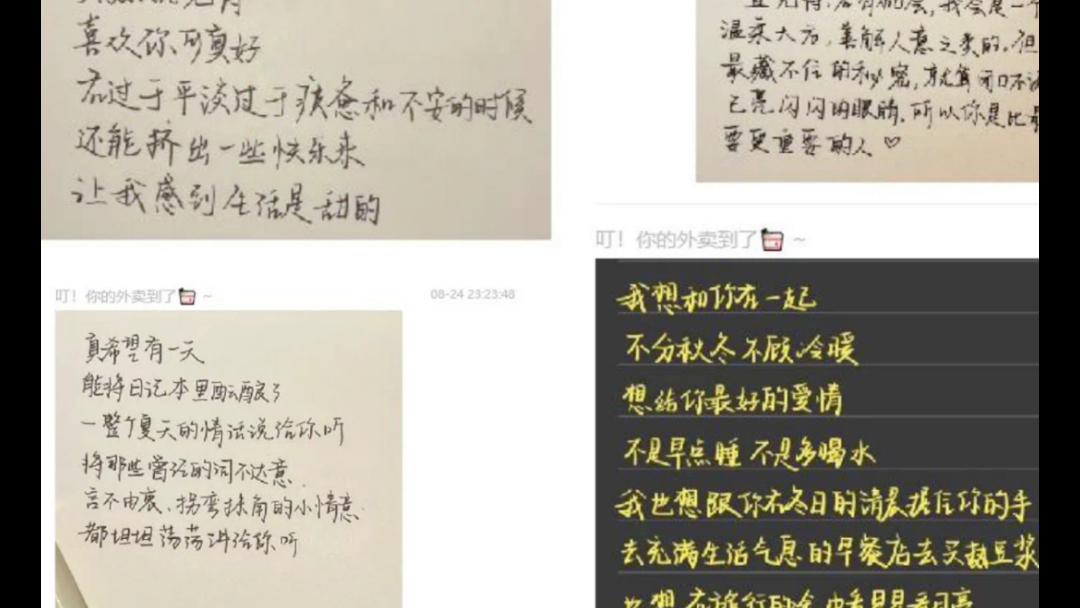 喜欢你可真好
在过于平淡过于疲惫和不安的时候
还能挤出一些快乐来
让我感到生活是甜的
叮！你的外卖到了 ~
08-24 23:23:48
真希望有一天
能将日记本里酝酿了
一整个夏天的情话说给你听
将那些曾经的词不达意
言不由衷、拐弯抹角的小情意
都坦坦荡荡讲给你听
温柔大方，善解人意之类的，但
最藏不住的秘密，就算闭口不
已亮闪闪的眼睛，所以你是比
要更重要的人♡
叮！你的外卖到了 ~
我想和你在一起
不分秋冬不顾冷暖
想给你最好的爱情
不是早点睡 不是多喝水
我也想跟你在冬日的清晨握住你的手
去充满生活气息的早餐店去买热豆浆